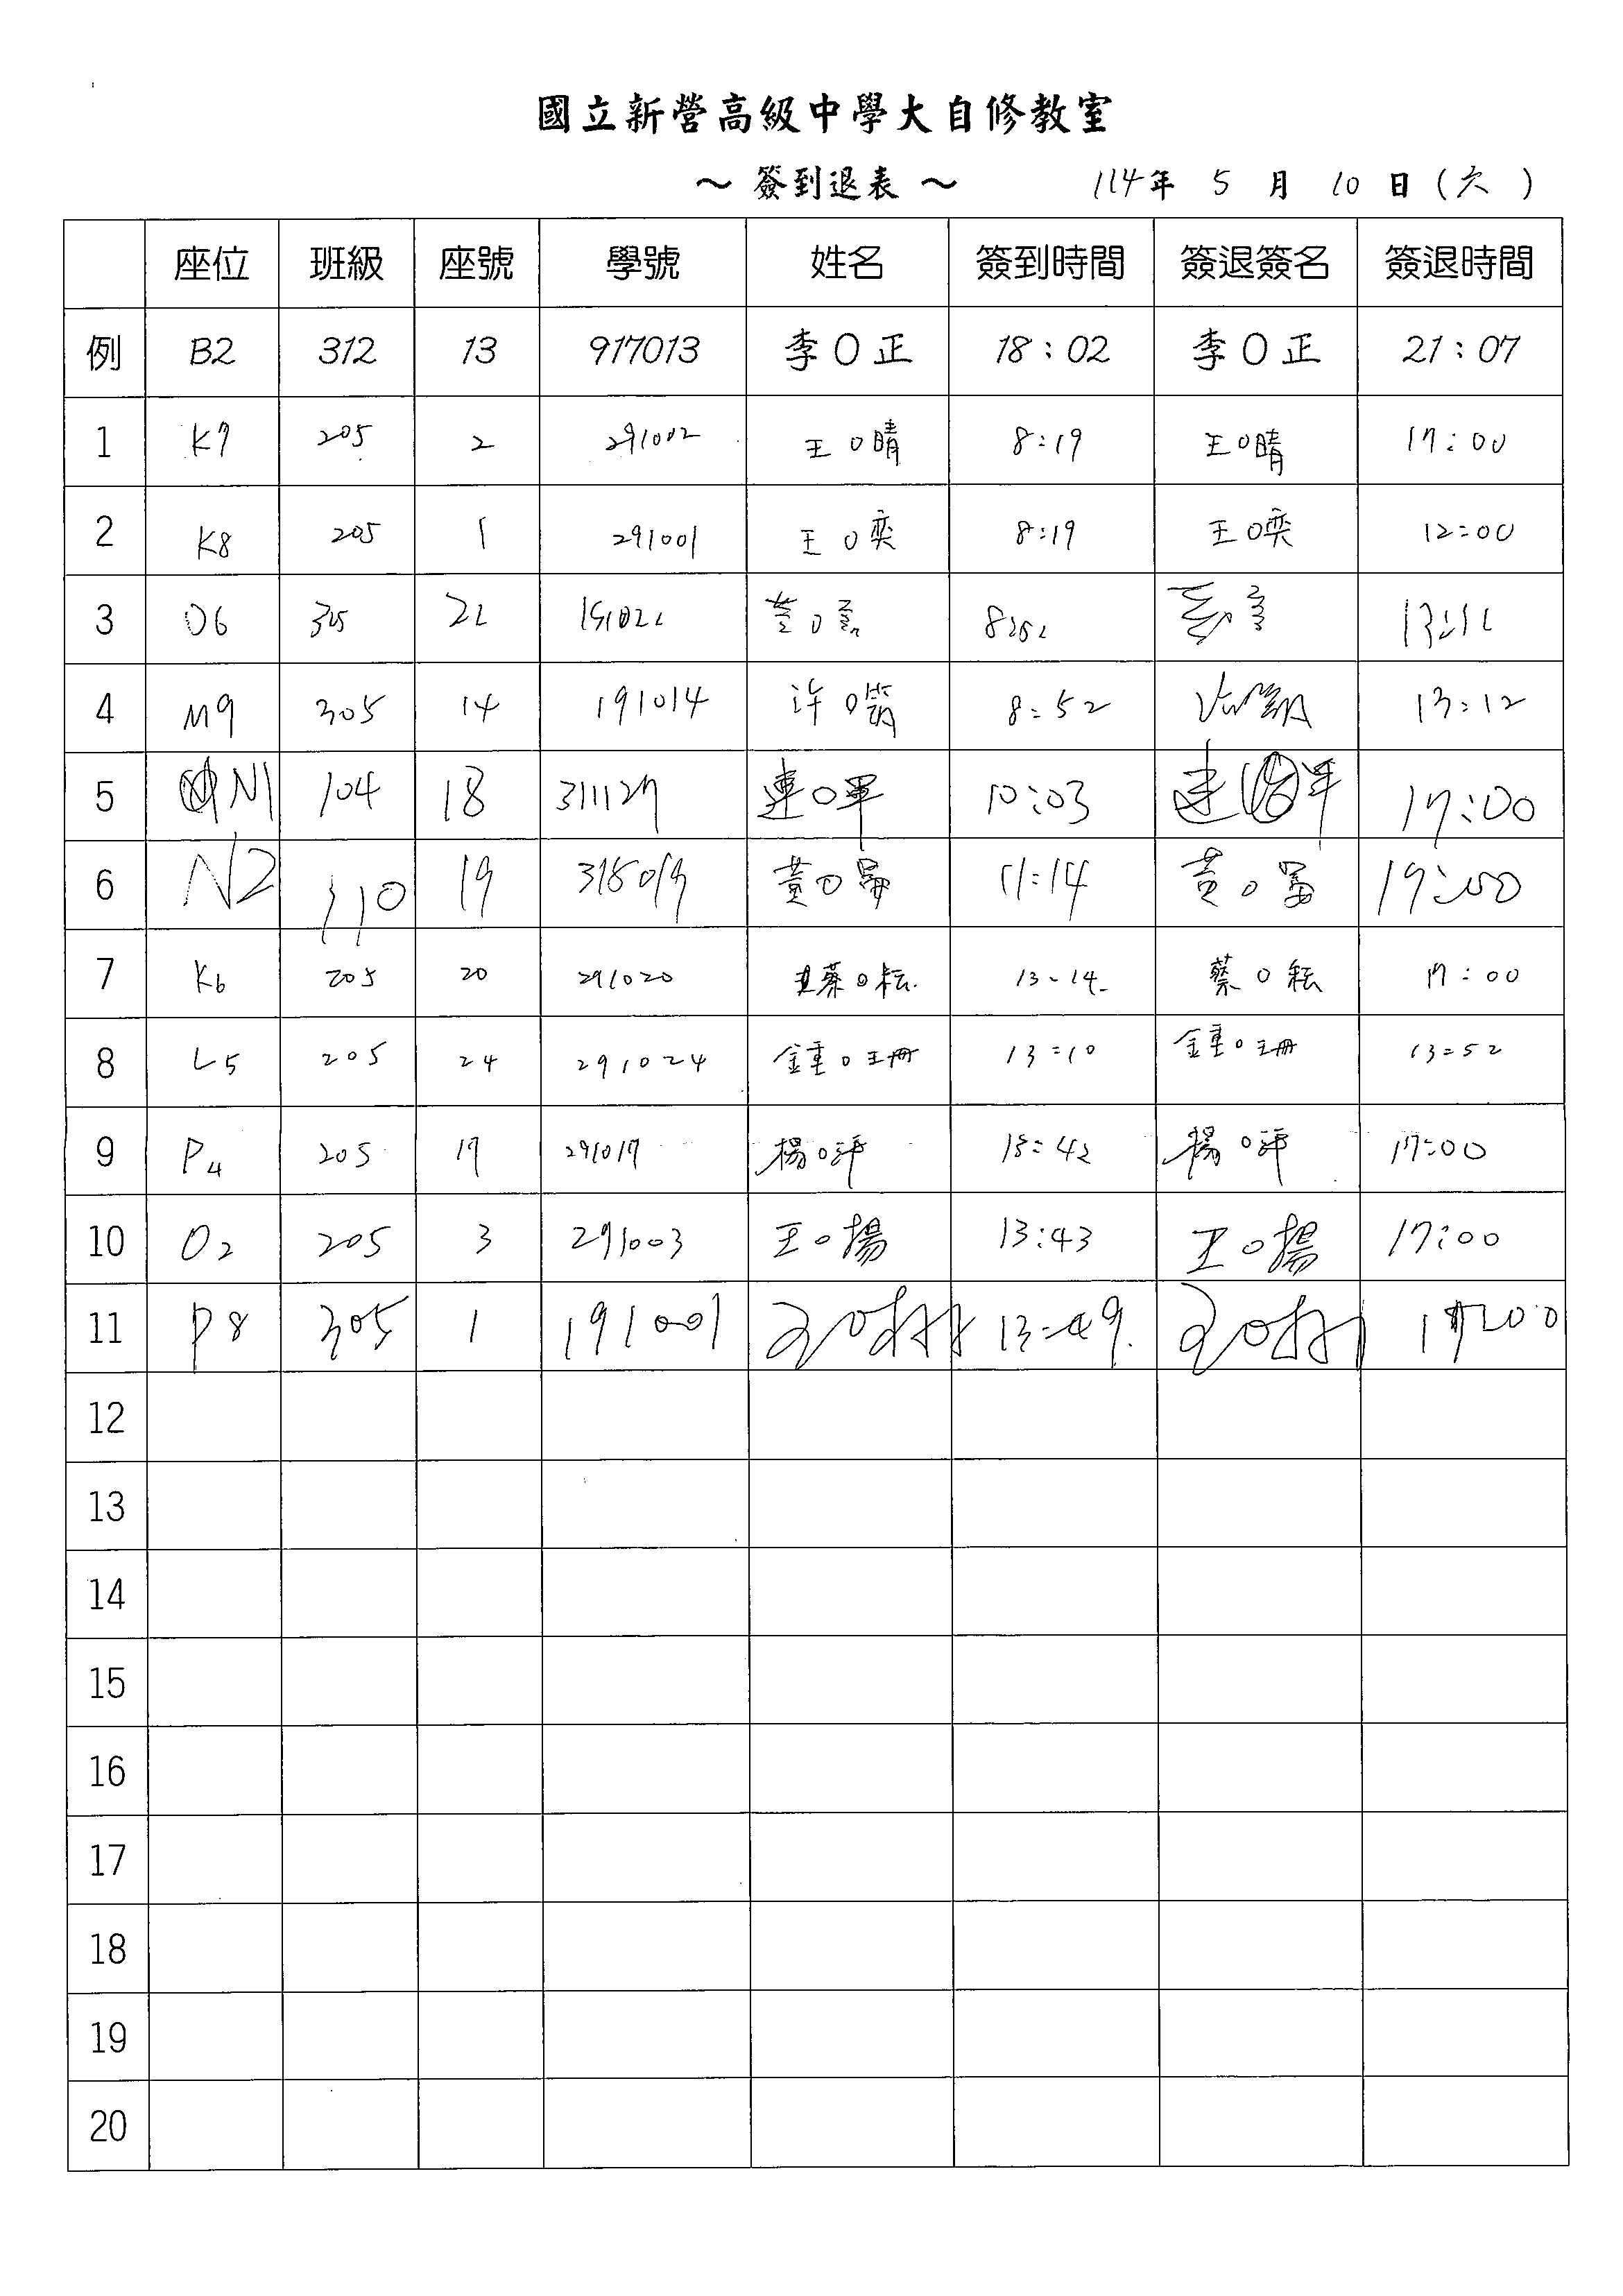 國立新營高級中學大自修教室
～ 簽到退表 ～ 114年 5 月 10 日 (六)
座位 班級 座號 學號 姓名 簽到時間 簽退簽名 簽退時間
例 B2 312 13 917013 李O正 18:02 李O正 21:07
1 K7 205 2 291002 王O晴 8:19 王O晴 17:00
2 K8 205 1 291001 王O奕 8:19 王O奕 12:00
3 O6 305 22
4 M9 305 14 191014 许O 8:52 13:12
5 N1 104 18 311127 連O 10:03 17:00
6 N2 310 19 黃O 11:14 黃O
7 K6 205 20 291020 蔡O耘 13:14 蔡O耘 17:00
8 L5 205 24 291024 鍾O珊 13:10 鍾O珊 13:52
9 P4 205 17 291017 楊O 楊O 17:00
10 O2 205 3 291003 王O揚 13:43 王O揚 17:00
11 P8 305 1 191001 13:49 17:00
12
13
14
15
16
17
18
19
20